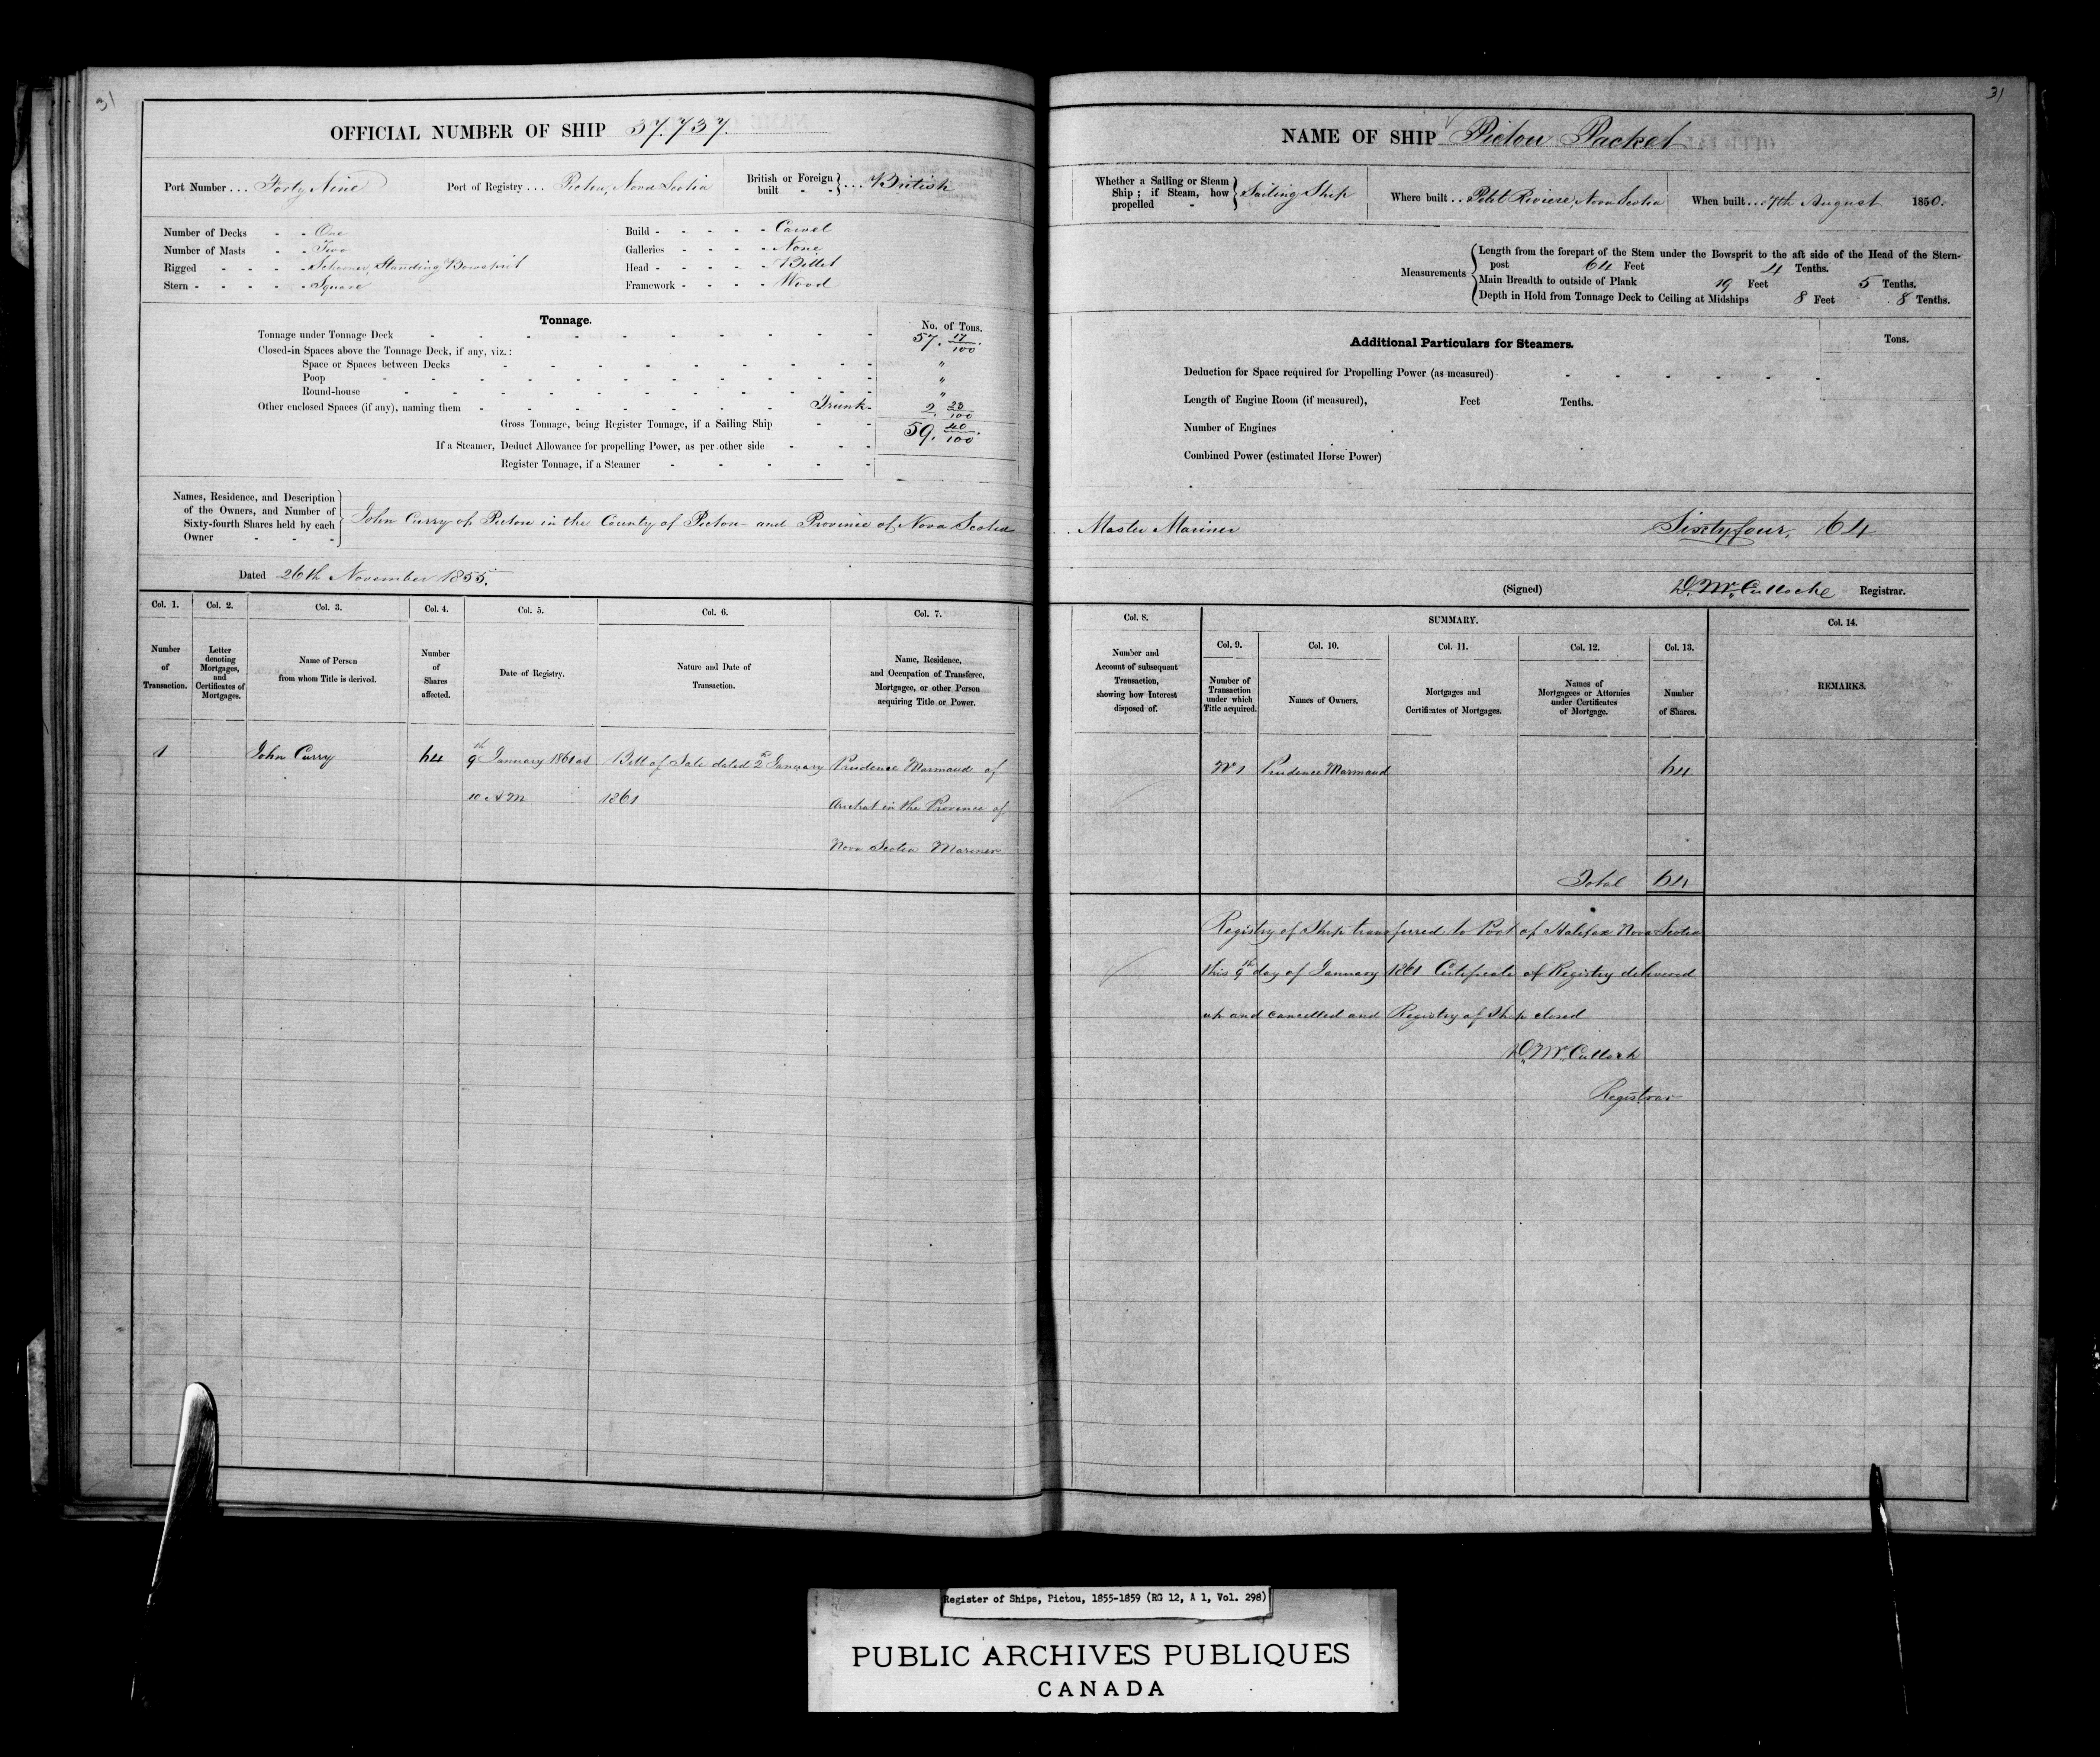 31
OFFICIAL NUMBER OF SHIP 37.737.
Port Number ... Forty Nine
Port of Registry ... Pictou, Nova Scotia
British or Foreign built - - } ... British
Number of Decks - - One
Number of Masts - - Two
Rigged - - - - Schooner, Standing Bowsprit
Stern - - - - - Square
Build - - - - - Carvel
Galleries - - - - None
Head - - - - - Billet
Framework - - - - Wood
Tonnage.
No. of Tons.
Tonnage under Tonnage Deck - - - 57. 17/100.
Closed-in Spaces above the Tonnage Deck, if any, viz.:
Space or Spaces between Decks - - - "
Poop - - - "
Round-house - - - "
Other enclosed Spaces (if any), naming them - - - Trunk - 2. 23/100
Gross Tonnage, being Register Tonnage, if a Sailing Ship - - 59. 40/100.
If a Steamer, Deduct Allowance for propelling Power, as per other side - - -
Register Tonnage, if a Steamer - - - - -
Names, Residence, and Description
of the Owners, and Number of
Sixty-fourth Shares held by each
Owner - - - -
John Curry of Pictou in the County of Pictou and Province of Nova Scotia
Dated 26th November 1855.
Col. 1. Col. 2. Col. 3. Col. 4. Col. 5. Col. 6. Col. 7.
Number of Transaction.
Letter denoting Mortgages, and Certificates of Mortgages.
Name of Person from whom Title is derived.
Number of Shares affected.
Date of Registry.
Nature and Date of Transaction.
Name, Residence, and Occupation of Transferee, Mortgagee, or other Person acquiring Title or Power.
1 John Curry 64 9th January 1861 at Bill of Sale dated 2d January Prudence Marmaud of
10 A M 1861 Arichat in the Province of
Nova Scotia Mariner
31
NAME OF SHIP Pictou Packet
Whether a Sailing or Steam Ship; if Steam, how propelled - } Sailing Ship
Where built .. Petit Riviere, Nova Scotia
When built ... 7th August 1850.
Measurements
Length from the forepart of the Stem under the Bowsprit to the aft side of the Head of the Stern-
post 64 Feet 4 Tenths.
Main Breadth to outside of Plank 19 Feet 5 Tenths.
Depth in Hold from Tonnage Deck to Ceiling at Midships 8 Feet 8 Tenths.
Additional Particulars for Steamers.
Tons.
Deduction for Space required for Propelling Power (as measured) - - -
Length of Engine Room (if measured), Feet Tenths.
Number of Engines
Combined Power (estimated Horse Power)
Master Mariner Sixty four, 64
(Signed) D. McCulloche Registrar.
Col. 8. SUMMARY. Col. 14.
Col. 9. Col. 10. Col. 11. Col. 12. Col. 13.
Number and Account of subsequent Transaction, showing how Interest disposed of.
Number of Transaction under which Title acquired.
Names of Owners.
Mortgages and Certificates of Mortgages.
Names of Mortgagees or Attornies under Certificates of Mortgage.
Number of Shares.
REMARKS.
No 1 Prudence Marmaud 64
Total 64
Registry of Ship transferred to Port of Halifax Nova Scotia
this 9th day of January 1861 Certificate of Registry delivered
up and cancelled and Registry of Ship closed
D. McCulloch
Registrar
Register of Ships, Pictou, 1855-1859 (RG 12, A 1, Vol. 298)
PUBLIC ARCHIVES PUBLIQUES
CANADA